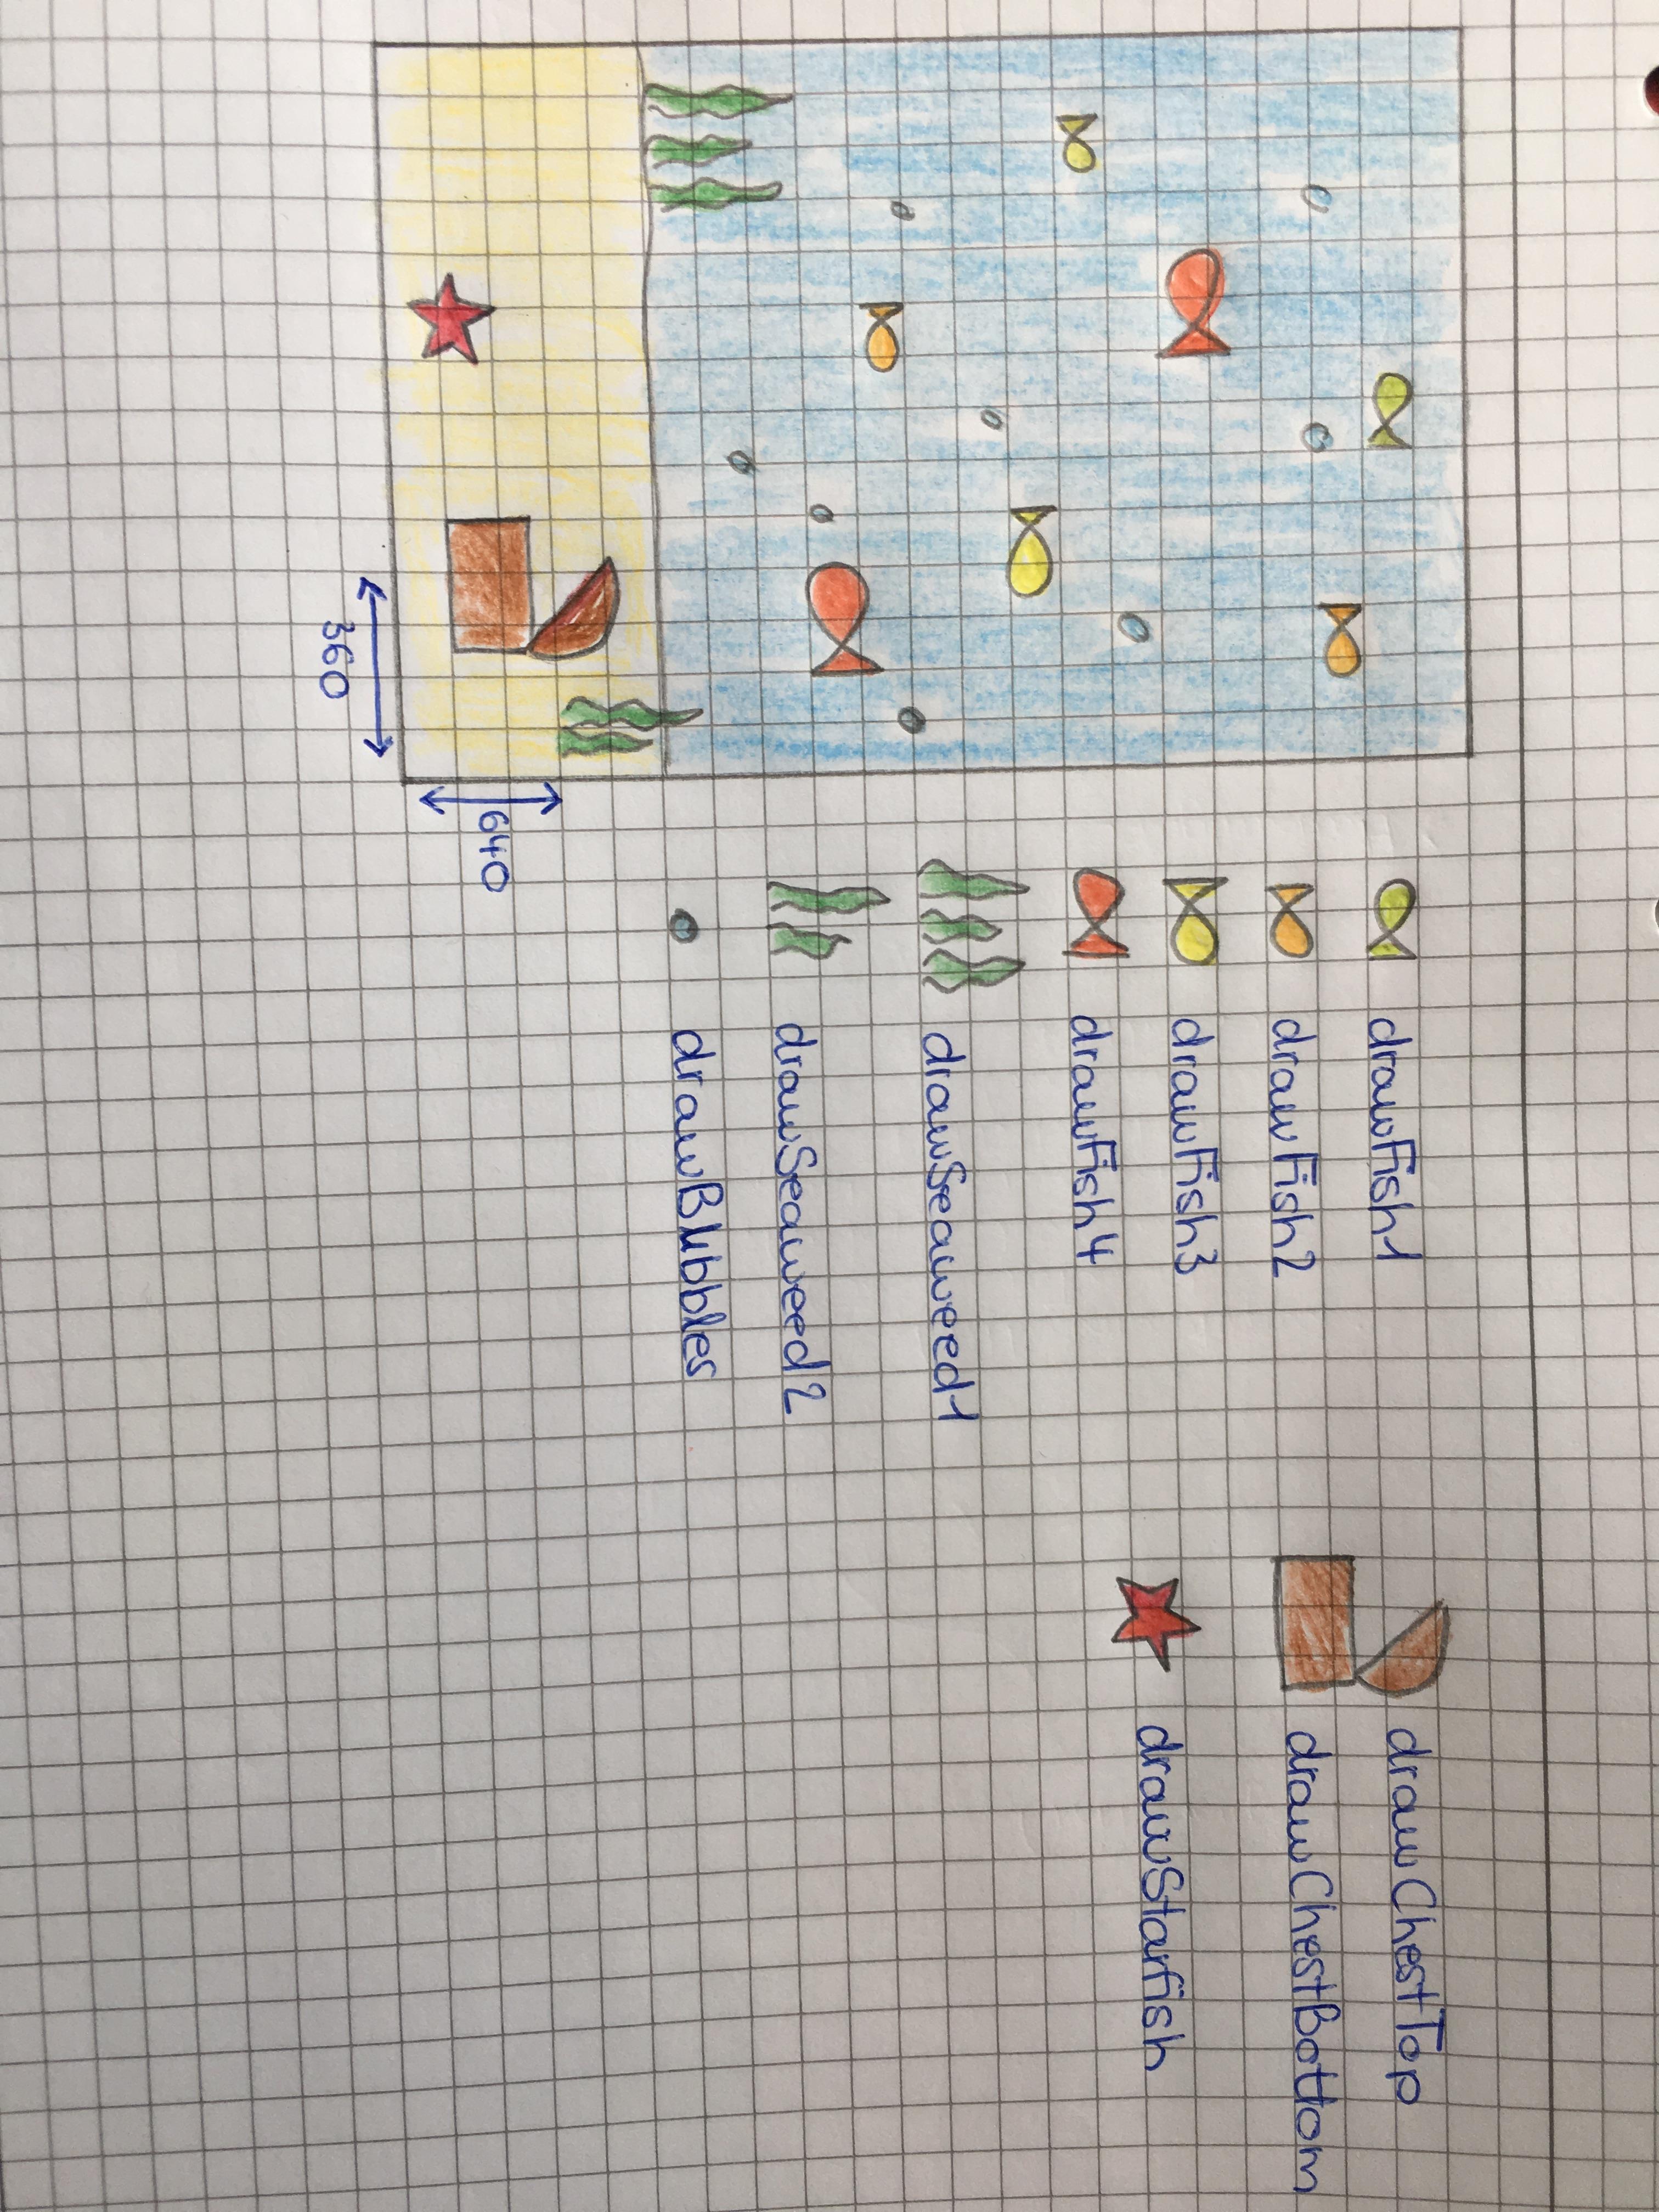 drawFish1
drawFish2
drawFish3
drawFish4
drawSeaweed1
drawSeaweed2
drawBubbles
drawChestTop
drawChestBottom
drawStarfish
640
360